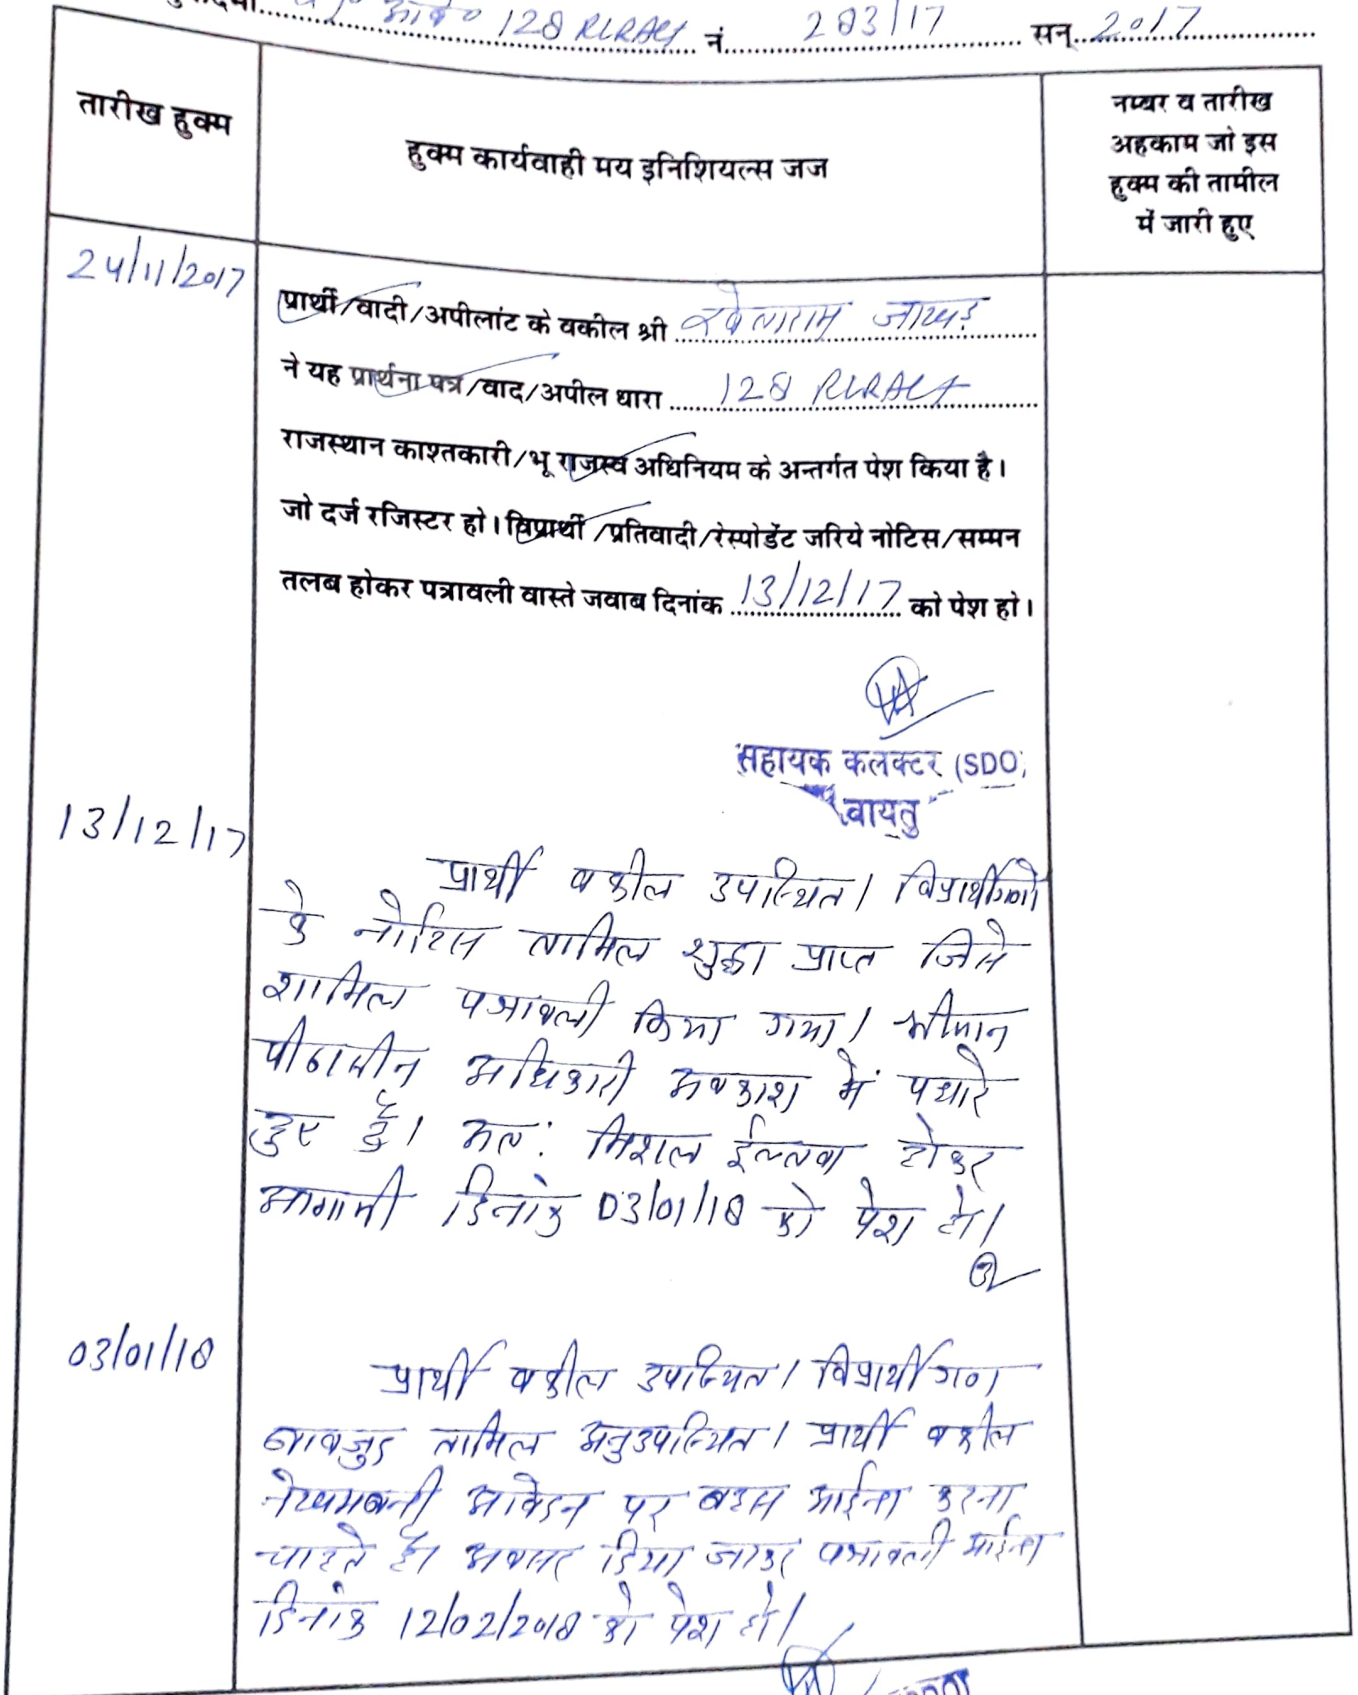 128 RLRAct नं. 283/17 सन् 2017
तारीख हुक्म
हुक्म कार्यवाही मय इनिशियल्स जज
नम्बर व तारीख
अहकाम जो इस
हुक्म की तामील
में जारी हुए
24/11/2017
प्रार्थी/वादी/अपीलांट के वकील श्री जाखड़
ने यह प्रार्थना पत्र/वाद/अपील धारा 128 RLRAct
राजस्थान काश्तकारी/भू राजस्व अधिनियम के अन्तर्गत पेश किया है।
जो दर्ज रजिस्टर हो। विप्रार्थी/प्रतिवादी/रेस्पोडेंट जरिये नोटिस/सम्मन
तलब होकर पत्रावली वास्ते जवाब दिनांक 13/12/17 को पेश हो।
सहायक कलक्टर (SDO)
बायतु
13/12/17
प्रार्थी वकील उपस्थित। विप्रार्थीगणो
के नोटिस तामिल शुदा प्राप्त जिसे
शामिल पत्रावली किया गया। श्रीमान
पीठासीन अधिकारी अवकाश में पधारे
हुए है। अतः मिशल ईल्तवा होकर
आगामी दिनांक 03/01/18 को पेश हो।
03/01/18
प्रार्थी वकील उपस्थित। विप्रार्थीगण
बावजुद तामिल अनुउपस्थित। प्रार्थी वकील
आवेदन पर बहस आईन्दा करना
चाहते है। अवसर दिया जाकर पत्रावली आईन्दा
दिनांक 12/02/2018 को पेश हो।